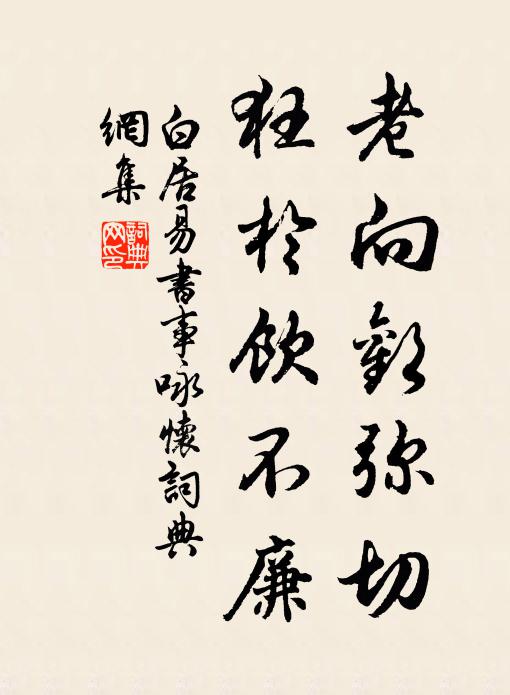 老向歡弥切
狂於飲不廉
白居易書事咏懷詞典
網集
詞典
网印